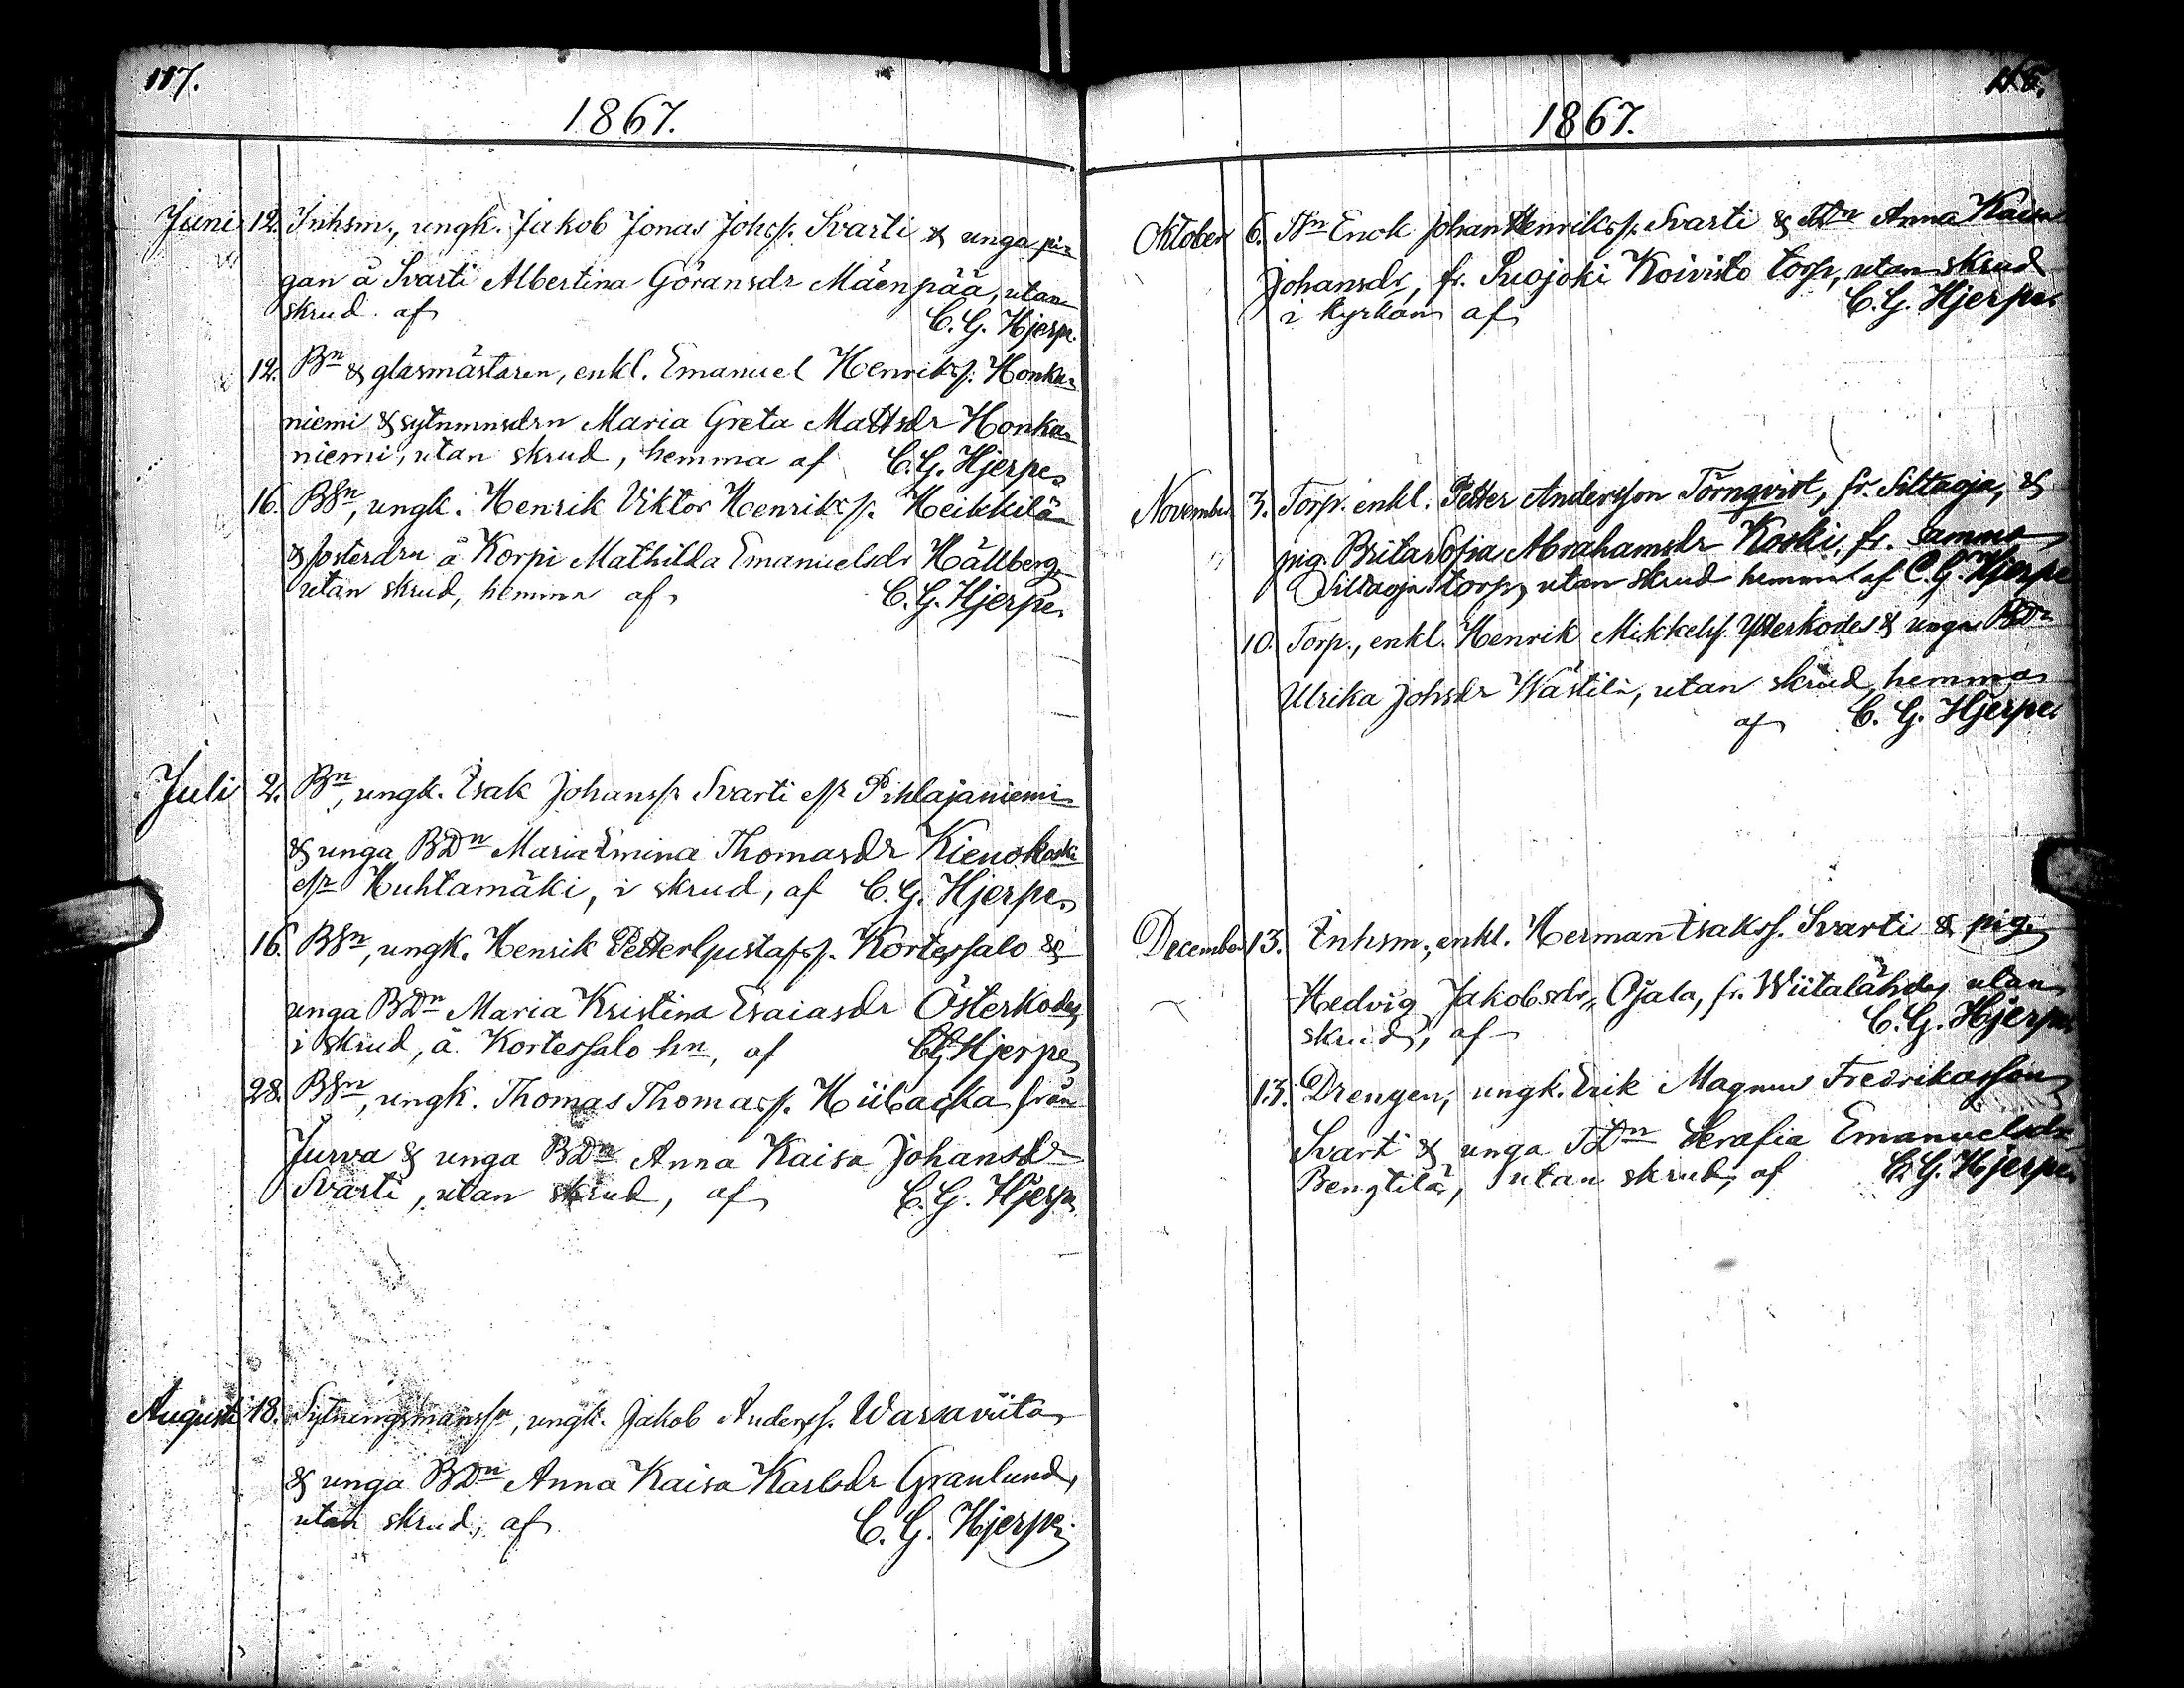 117.
1867.
Juni 12. Inhsm., ungk. Jakob Jonas Johss. Svarti & unga pi-
gan å Svarti Albertina Göransdr Mäenpää, utan
skrud. af C. G. Hjerpe.
12. Bn & glasmästaren, enkl. Emanuel Henrikss. Honka-
niemi & sytnmnsdrn Maria Greta Mattsdr Honka-
niemi, utan skrud, hemma af C. G. Hjerpe.
16. BSn, ungk. Henrik Viktor Henrikss. Heikkilä
& fosterdrn å Korpi Mathilda Emanuelsdr Hällberg
utan skrud, hemma af C. G. Hjerpe.
Juli 2. Bn, ungk. Isak Johanss. Svarti ell. Pihlajaniemi
& unga BDn Maria Emina Thomasdr Kienokoski
ell. Huhtamäki, i skrud, af C. G. Hjerpe.
16. BSn, ungk. Henrik Petter Gustafss. Kortessalo &
unga BDn Maria Kristina Esaiasdr Österkodes
i skrud, å Kortessalo hn, af C G Hjerpe
28. BSn, ungk. Thomas Thomass. Hiibacka från
Jurva & unga BDn Anna Kaisa Johansdr
Svarti, utan skrud, af C. G. Hjerpe
Augusti 18. Sytningsmanssn, ungk. Jakob Anderss. Warsaviita
& unga BDn Anna Kaisa Karlsdr Granlund,
utan skrud, af C. G. Hjerpe.
1867.
Oktober 6. Enok Johan Henrikss. Svarti & TDn Anna Kaisa
Johansdr, fr. Suojoki Koivisto torp, utan skrud
i kyrkan af C. G. Hjerpe.
November 3. Torp. enkl. Petter Andersson Törnqvist, fr. Siltaoja, &
pig. Brita Sofia Abrahamsdr Koski, fr. samma
Siltaoja torp, utan skrud hemma af C. G. Hjerpe
10. Torp., enkl. Henrik Mikkelss. Ytterkodes & unga BDn
Ulrika Johsdr Wästilä, utan skrud, hemma
af C. G. Hjerpe.
December 13. Inhsm., enkl. Herman Isakss. Svarti & pig.
Hedvig Jakobsdr, Ojala, fr. Wiitalähde, utan
skrud, af C. G. Hjerpe
13. Drengen, ungk. Erik Magnus Fredriksson
Svart & unga TDn Serafia Emanuelsdr
Bengtilä, utan skrud, af C. G. Hjerpe.